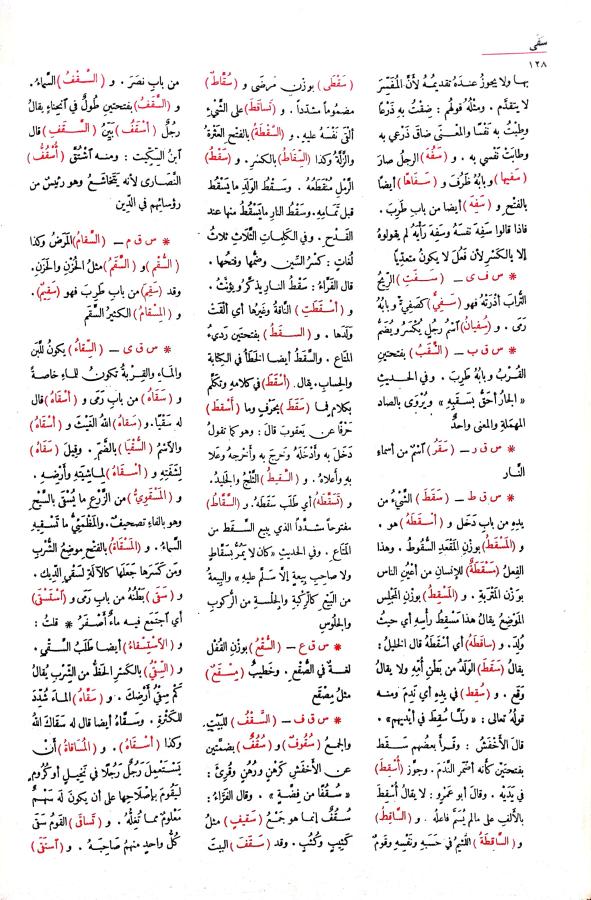 سقى
١٢٨
بها ولا يجوز عنده تقديمه لأنّ المُفَسِّر
لا يتقدّم . ومثلُه قولهم : ضِقْتُ به ذَرْعًا
وطِبْتُ به نَفْسًا والمعنى ضاق ذَرْعي به
وطابَتْ نفسي به . و (سَفُهَ) الرجلُ صار
(سَفِيها) وبابه ظَرُف و (سَفَاهًا) أيضا
بالفتح و (سَفِهَ) أيضا من باب طَرِب .
فاذا قالوا سَفِهَ نفسَه وسَفِهَ رأيَه لم يقولوه
إلا بالكسر لأن فَعُلَ لا يكون متعدّيا
* س ف ى – (سَفَتِ) الرّيحُ
التُّرابَ أذْرَتْه فهو (سَفِيٌّ) كصَفِيّ وبابُه
رَمَى . و (سُفيانُ) اسم رجُل يُكْسَر ويُضَم
* س ق ب – (السَّقَبُ) بفتحتين
القُرْبُ وبابه طَرِب . وفي الحديث
« الجارُ أحَقُّ بسَقَبِه » ويُرْوَى بالصاد
المهملة والمعنى واحدٌ
* س ق ر – (سَقَرُ) اسم من أسماء
النار
* س ق ط – (سَقَطَ) الشّيءُ من
يده من باب دَخَل و (أَسْقَطَهُ) هو .
و (المَسْقَطُ) بوزن المَقْعَد السُّقوط . وهذا
الفِعلُ (مَسْقَطةٌ) للإنسان من أعْيُن الناس
بوزن المَتْرَبة . و (المَسْقِطُ) بوزن المَجْلِس
المَوْضِعُ يقال هذا مَسْقِط رأسِه أي حيثُ
وُلِد . و (ساقَطَهُ) أي أسْقَطَهُ قال الخليل :
يقال (سَقَطَ) الوَلَدُ من بَطْن أُمّه ولا يقال
وقع . و (سُقِطَ) في يده أي نَدِم ومنه
قولُه تعالى : « ولَمّا سُقِطَ في أيْدِيهم » .
قال الأخْفَش : وقَرأ بعضُهم سَقَط
بفتحتين كأنه أضْمَر النّدَم . وجوّز (أُسْقِطَ)
في يَدَيْه . وقال أبو عَمْرو : لا يقال أُسْقِطَ
بالألف على مالم يُسَمَّ فاعله . و (السّاقِطُ)
و (السّاقِطَةُ) اللَّئيمُ في حَسَبه ونَفْسِه وقومٌ
(سَقْطَى) بوزن مَرْضَى و (سُقّاطٌ)
مضموما مشدّدا . و (تَساقَطَ) على الشّيْء
ألْقى نَفْسَه عليه . و (السَّقْطَةُ) بالفتح العَثْرَةُ
والزَّلّةُ وكذا (السِّقاطُ) بالكسر . و (سَقْطُ)
الرَّمْل مُنْقَطَعُه . وسَقْط الوَلَد ما يَسْقُط
قبل تمَامِه . وسَقْط النار ما يَسْقُط منها عند
القَدْح . وفي الكلمات الثَّلاث ثلاثُ
لُغات : كَسْرُ السّين وضَمُّها وفتحُها .
قال الفَرّاء : سَقْط النار يذكّر ويؤنّث .
و (أَسْقَطَتِ) النّاقةُ وغيرُها أي ألْقَتْ
ولَدَها . و (السَّقَطُ) بفتحتين رَدِيءُ
المَتاع . والسَّقَطُ أيضا الخطأ في الكتابة
والحساب . يقال (أَسْقَطَ) في كلامه وتكلّم
بكلام فما (سَقَطَ) بحَرْفٍ وما (أَسْقَطَ)
حَرْفًا عن يعقوبَ قال : وهو كما تقول
دخَل به وأدْخلَه وخَرج به وأخْرجَه وعَلا
به وأعْلاه . و (السَّقِيطُ) الثَّلْجُ والجَلِيد .
و (تَسَقَّطَهُ) أي طَلَب سَقَطَه . و (السَّقّاطُ)
مفتوحا مشدّدا الذي يبيع السَّقَط من
المَتاع . وفي الحديث «كان لا يَمُرّ بسَقّاطٍ
ولا صاحب بِيعةٍ إلا سَلّم عليه» والبِيعةُ
من البَيْع كالرِّكبة والجِلْسة من الرُّكوب
والجُلوس
* س ق ع – (السُّقْعُ) بوزن القُفْل
لغةٌ في الصُّقْع . وخَطيبٌ (مِسْقَعٌ)
مثلُ مِصْقَع
* س ق ف – (السَّقْفُ) للبَيْت
والجمعُ (سُقوفٌ) و (سُقُفٌ) بضمّتين
عن الأخفش كرَهْن ورُهُن وقُرِئ :
« سُقُفًا من فِضّة » . وقال الفَرّاء :
سُقُفٌ إنما هو جمْعُ (سَقِيفٍ) مثلُ
كَثِيب وكُثُب . وقد (سَقَفَ) البيتَ
من باب نَصَر . و (السَّقْفُ) السَّماءُ .
و (السَّقَفُ) بفتحتين طُولٌ في انحناء يقال
رجُلٌ (أَسْقَفُ) بَيِّنُ (السَّقَفِ) قال
ابنُ السِّكِّيت : ومنه اشْتُقَّ (أُسْقُفُّ)
النّصارى لأنه يَتخاشَع وهو رَئيسٌ من
رؤسائهم في الدِّين
* س ق م – (السَّقامُ) المَرَضُ وكذا
(السُّقْم) و (السَّقَمُ) مثلُ الحُزْن والحَزَن .
وقد (سَقِمَ) من باب طَرِبَ فهو (سَقِيمٌ) .
و (المِسْقامُ) الكثيرُ السُّقْم
* س ق ى – (السِّقاءُ) يكونُ للّبَن
والماءِ والقِرْبةُ تكون للماء خاصّةً
و (سَقاهُ) من باب رَمَى و (أَسْقاهُ) قال
له سَقْيًا . و (سَقاهُ) اللهُ الغَيْثَ و (أَسْقاهُ)
والاسمُ (السُّقْيا) بالضّم . وقيل (سَقاهُ)
لشَفَتِه و (أَسْقاهُ) لماشِيَته وأرْضِه .
و (المَسْقَوِيُّ) من الزَّرْع ما يُسْقَى بالسَّيْح
وهو بالفاء تصحيفٌ . والمَظْمَئِيُّ ما تَسْقِيه
السماءُ . و (المَسْقاةُ) بالفتح موضِعُ الشُّرْب
ومَن كَسَرها جعلَها كالآلة لسَقْيِ الدِّيك .
و (سَقَى) بَطْنُه من باب رَمى و (اسْتَسْقى)
أي اجتمع فيه ماءٌ أصْفَرُ * قلت :
و (الاسْتِسْقاءُ) أيضا طَلَبُ السَّقْي .
و (السِّقْيُ) بالكسر الحَظُّ من الشُّرْب يُقال
كم سِقْيُ أرْضِك . و (سَقّاهُ) الماءَ شُدِّدَ
للكَثْرة . وسَقّاه أيضا قال له سَقَاكَ اللهُ
وكذا (أَسْقاهُ) . و (المُساقاةُ) أنْ
يَسْتعمل رَجُلٌ رجُلًا في نَخِيل أو كُروم
ليقُومَ بإصْلاحِها على أن يكون له سَهْمٌ
مَعْلومٌ مما تُغِلُّه . و (تَساقى) القومُ سَقَى
كلُّ واحدٍ منهم صاحِبَهُ . و (اسْتَقى)